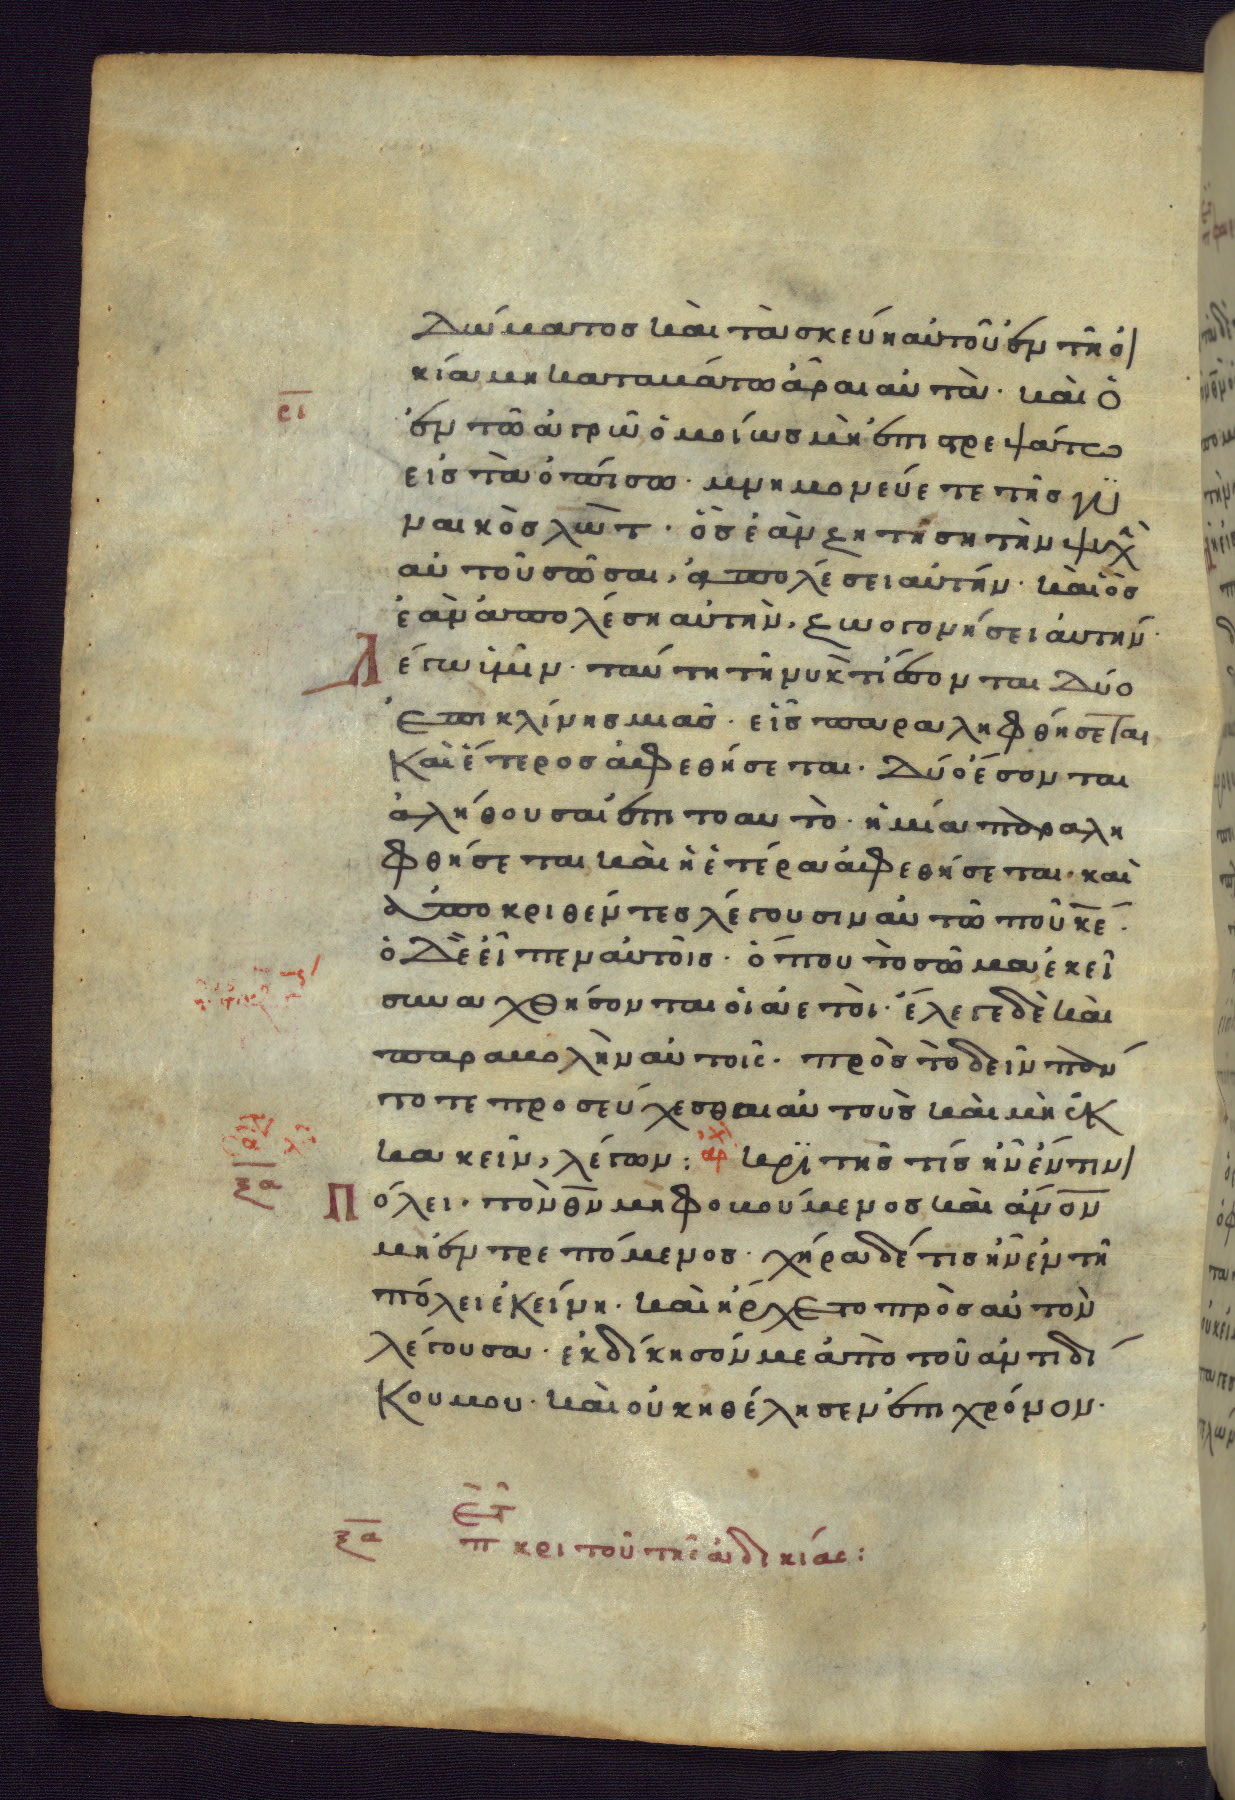 δώματος καὶ τὰ σκεύη αὐτοῦ ἐν τῆ ὀι
κία μὴ καταβάτω ἆραι αὐτὰ· καὶ ὁ
ρι
ἐν τῶ ἀγρῶ ὁμοίως μὴ ἐπιστρεψάτω
εἰς τὰ ὀπίσω· μνημονεύετε τῆς γϋ
ναικὸς λὼτ· ὃς ἐὰν ζητήση τὴν ψυχὴ
αὐτοῦ σῶσαι, ἀπολέσει αὐτήν· καὶ ὃς
ἐὰν ἀπολέση αὐτὴν, ζωογονήσει ἀυτήν·
Λέγω ὑμῖν· ταύτη τῆ νυκτὶ ἔσονται δύο
ἐπι κλίνης μιᾶς· εἷς παραληφθήσεται
Καὶ ἕτερος ἀφεθήσεται· δύο ἔσονται
ἀλήθουσαι ἐπι το αυτὸ· ἡ μία παραλη
φθήσεται καὶ ἡ ἑτέρα ἀφεθήσεται· καὶ
ἀποκριθέντες λέγουσιν αὐτῶ ποῦ κε·
ὁ δὲ εἶπεν αὐτοῖς· ὅπου τὸ σῶμα ἐκεῖ
συναχθήσονται οἱ ἀετὸι· ἔλεγε δὲ καὶ
παραβολὴν αὐτοῖς· πρὸς τὸ δεῖν πάν
τοτε προσεύχεσθαι αὐτοὺς καὶ μὴ ἐκ
κακεῖν, λέγων: αρχ κριτής τίς ἦν ἔν τινι
ξα
Πόλει· τὸν θν μὴ φοβούμενος καὶ ἀνον
μὴ ἐντρεπόμενος· χήρα δέ τις ἦν ἐν τῆ
πόλει ἐκείνη· καὶ ἤρχετο πρὸς αὐτὸν
λέγουσα· ἐκδίκησόν με ἀπὸ τοῦ ἀντιδί
Κου μου· καὶ οὐκ ἠθέλησεν ἐπι χρόνον·
ξα π κριτοῦ τῆς ἀδικίας: